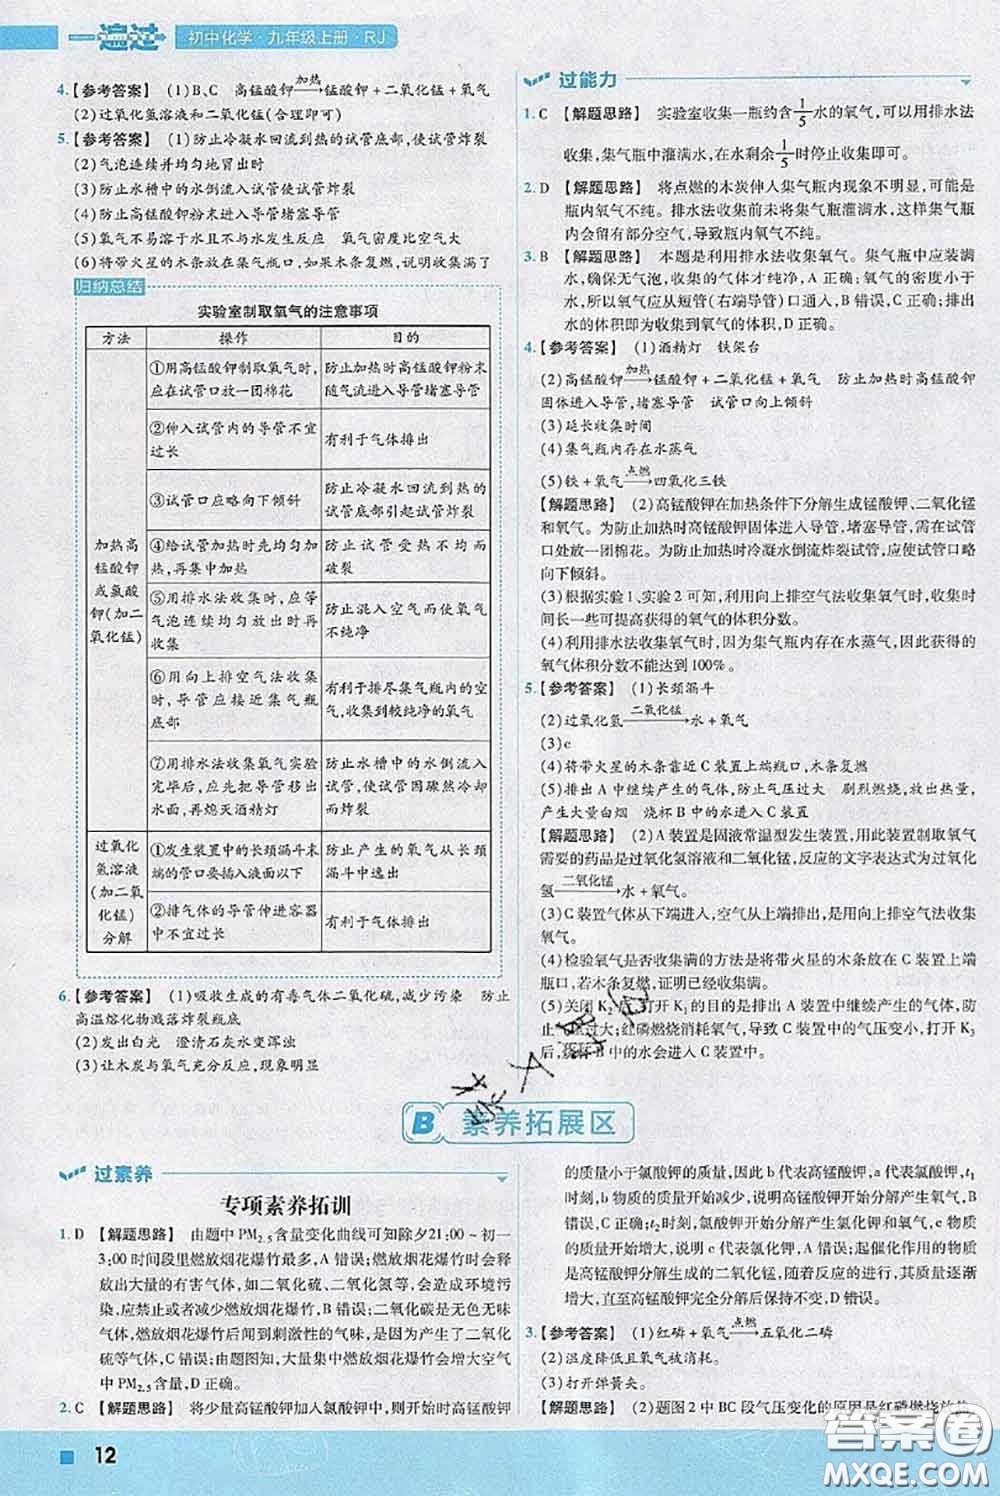 一遍过 初中化学·九年级上册·RJ
4.【参考答案】 (1)B、C 高锰酸钾—加热→锰酸钾+二氧化锰+氧气
(2)过氧化氢溶液和二氧化锰(合理即可)
5.【参考答案】 (1)防止冷凝水回流到热的试管底部,使试管炸裂
(2)气泡连续并均匀地冒出时
(3)防止水槽中的水倒流入试管使试管炸裂
(4)防止高锰酸钾粉末进入导管堵塞导管
(5)氧气不易溶于水且不与水发生反应 氧气密度比空气大
(6)将带火星的木条放在集气瓶口,如果木条复燃,说明收集满了
归纳总结
实验室制取氧气的注意事项
方法 操作 目的
加热高
锰酸钾
或氯酸
钾(加二
氧化锰)
①用高锰酸钾制取氧气时,
应在试管口放一团棉花
防止加热时高锰酸钾粉末
随气流进入导管堵塞导管
②伸入试管内的导管不宜
过长
有利于气体排出
③试管口应略向下倾斜
防止冷凝水回流到热的试
管底部引起试管炸裂
④给试管加热时先均匀加
热,再集中加热
防止试管受热不均而
破裂
⑤用排水法收集时,应等
气泡连续均匀放出时再
收集
防止混入空气而使氧气
不纯净
⑥用向上排空气法收集
时,导管应接近集气瓶
底部
有利于排尽集气瓶内的空
气,收集到较纯净的氧气
⑦用排水法收集氧气实验
完毕后,应先把导管移出
水面,再熄灭酒精灯
防止水槽中的水倒流入
试管,使试管因骤然冷却
而炸裂
过氧化
氢溶液
(加二氧
化锰)
分解
①发生装置中的长颈漏斗末
端的管口要插入液面以下
防止产生的氧气从长颈
漏斗中逸出
②排气体的导管伸进容器
中不宜过长
有利于气体导出
6.【参考答案】 (1)吸收生成的有毒气体二氧化硫,减少污染 防止
高温熔化物溅落炸裂瓶底
(2)发出白光 澄清石灰水变浑浊
(3)让木炭与氧气充分反应,现象明显
过能力
1.C 【解题思路】 实验室收集一瓶约含1/5水的氧气,可以用排水法
收集,集气瓶中灌满水,在水剩余1/5时停止收集即可。
2.D 【解题思路】 将点燃的木炭伸入集气瓶内现象不明显,可能是
瓶内氧气不纯。排水法收集前未将集气瓶灌满水,这样集气瓶
内会留有部分空气,导致瓶内氧气不纯。
3.B 【解题思路】 本题是利用排水法收集氧气。集气瓶中应装满
水,确保无气泡,收集的气体才纯净,A正确;氧气的密度小于
水,所以氧气应从短管(右端导管)口通入,B错误,C正确;排出
水的体积即为收集到氧气的体积,D正确。
4.【参考答案】 (1)酒精灯 铁架台
(2)高锰酸钾—加热→锰酸钾+二氧化锰+氧气 防止加热时高锰酸钾
固体进入导管,堵塞导管 试管口向上倾斜
(3)延长收集时间
(4)集气瓶内存在水蒸气
(5)铁+氧气—点燃→四氧化三铁
【解题思路】 (2)高锰酸钾在加热条件下分解生成锰酸钾、二氧化锰
和氧气。为防止加热时高锰酸钾固体进入导管,堵塞导管,需在试管
口处放一团棉花。为防止加热时冷凝水倒流炸裂试管,应使试管口略
向下倾斜。
(3)根据实验1、实验2可知,利用向上排空气法收集氧气时,收集时
间长一些可提高获得的氧气的体积分数。
(4)利用排水法收集氧气时,因为集气瓶内存在水蒸气,因此获得的
氧气体积分数不能达到100%。
5.【参考答案】 (1)长颈漏斗
(2)过氧化氢—二氧化锰→水+氧气
(3)c
(4)将带火星的木条靠近C装置上端瓶口,木条复燃
(5)排出A中继续产生的气体,防止气压过大 剧烈燃烧,放出热量,
产生大量白烟 烧杯B中的水进入C装置
【解题思路】 (2)A装置是固液常温型发生装置,用此装置制取氧气
需要的药品是过氧化氢溶液和二氧化锰,反应的文字表达式为过氧化
氢—二氧化锰→水+氧气。
(3)C装置气体从下端进入,空气从上端排出,是用向上排空气法收集
氧气。
(4)检验氧气是否收集满的方法是将带火星的木条放在C装置上端
瓶口,若木条复燃,证明已经收集满。
(5)关闭K2后,打开K1的目的是排出A装置中继续产生的气体,防
止气压过大;红磷燃烧消耗氧气,导致C装置中的气压变小,打开K3
后,烧杯B中的水会进入C装置中。
B 素养拓展区
过素养
专项素养拓训
1.D 【解题思路】 由题中PM2.5含量变化曲线可知除夕21:00~初一
3:00时间段里燃放烟花爆竹最多,A错误;燃放烟花爆竹时会释
放出大量的有害气体,如二氧化硫、二氧化氮等,会造成环境污
染,应禁止或者减少燃放烟花爆竹,B错误;二氧化碳是无色无味
气体,而燃放烟花爆竹后闻到刺激性的气味,是因为产生了二氧化
硫等气体,C错误;由题图知,大量集中燃放烟花爆竹会增大空气
中PM2.5含量,D正确。
2.C 【解题思路】 将少量高锰酸钾加入氯酸钾中,则开始时高锰酸钾
的质量小于氯酸钾的质量,因此b代表高锰酸钾,a代表氯酸钾,t1
时刻,b物质的质量开始减少,说明高锰酸钾开始分解产生氧气,B
错误,C正确;t2时刻,氯酸钾开始分解产生氯化钾和氧气,c物质的
质量开始增大,说明c代表氯化钾,A错误;起催化作用的物质
是高锰酸钾分解生成的二氧化锰,随着反应的进行,其质量逐渐
增大,直至高锰酸钾完全分解后保持不变,D错误。
3.【参考答案】 (1)红磷+氧气—点燃→五氧化二磷
(2)温度降低且氧气被消耗。
(3)打开弹簧夹。
【解题思路】 (2)题图2中BC段气压变化的原因是红磷燃烧放热
12
答案圈
MXQE.COM